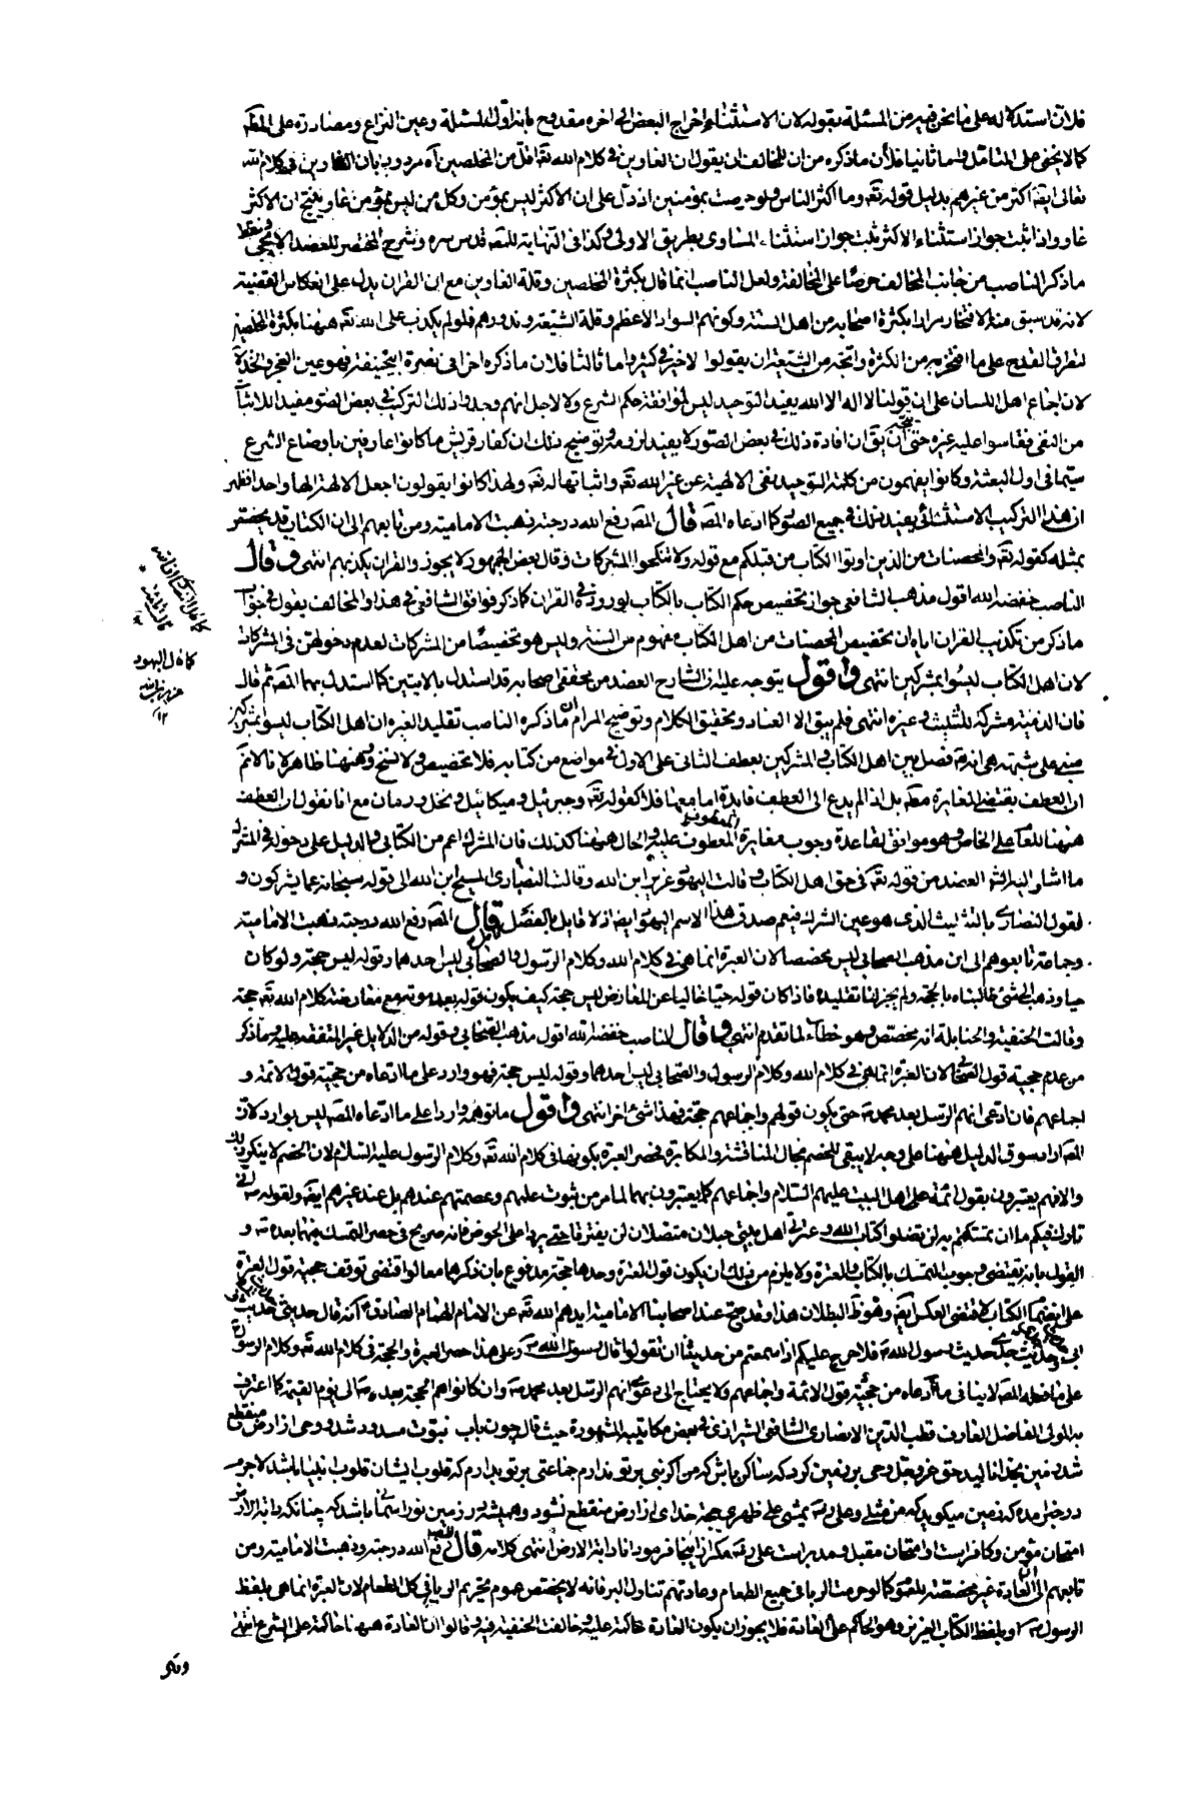 فلان استدلاله على ما نحن فيه من المسئلة بقوله لان الاستثناء اخراج البعض الى اخره مقدوح بانه اول المسئلة وعين النزاع ومصادرة على المط
كما لا يخفى على المتامل واما ثانيا فلأن ما ذكره من ان للمخالف ان يقول ان الغاوين في كلام الله تعه اقل من المخلصين آه مردود بان الغاوين في كلام الله
تعالى ايضا اكثر من غيرهم بدليل قوله تعه وما اكثر الناس ولو حرصت بمؤمنين اذ دل على ان الاكثر ليس بمؤمن وكل من ليس بمؤمن غاو ينتج ان الاكثر
غاو واذا ثبت جواز استثناء الاكثر ثبت جواز استثناء المساوى بطريق الاولى وكذا في النهاية للمصه قدس سره وشرح المختصر للعضد الايجي
ما ذكر الناصب من جانب المخالف حرصًا على المخالفة ولعل الناصب انما قال بكثرة المخلصين وقلة الغاوين مع ان القران يدل على انعكاس القضية
لانه قد سبق منه الافتخار مرارا بكثرة اصحابه من اهل السنة وكونهم السواد الاعظم وقلة الشيعة وندورهم فلو لم يكذب على الله تعه هيهنا بكثرة المخلصين
لتطرق القدح على ما افتخر به من الكثرة واتجه من الشيعة ان يقولوا لا خير في كثير واما ثالثا فلان ما ذكره اخرا في نصرة ابيحنيفة فهو عين العجز
لان اجماع اهل اللسان على ان قولنا لا اله الا الله يفيد التوحيد ليس لموافقة حكم الشرع ولا لاجل انهم وجدوا ذلك التركيب في بعض الصور مفيدا للاثبات
من النفي فقاسوا عليه غيره حتى يتجه ان يق ان افادة ذلك في بعض الصور لا يفيد لزومه وتوضيح ذلك ان كفار قريش ما كانوا عارفين باوضاع الشرع
سيّما في اول البعثة وكانوا يفهمون من كلمة التوحيد نفى الالهية عن غير الله تعه واثباتها له تعه ولهذا كانوا يقولون اجعل الالهة الها واحدا فظهر
ان هذا التركيب الاستثنائي يفيد ذلك في جميع الصور كما ادعاه المصه قال المصه رفع الله درجته ذهبت الامامية ومن تابعهم الى ان الكتاب قد يخصص
بمثله كقوله تعه والمحصنات من الذين اوتوا الكتاب من قبلكم مع قوله ولا تنكحوا المشركات وقال بعض الجمهور لا يجوز والقران يكذبهم انتهى وقال
الناصب خفضه الله اقول مذهب الشافعي جواز تخصيص حكم الكتاب بالكتاب لوروده في القران كما ذكر فوافق الشافعي في هذا والمخالف يقول في جواب
ما ذكر من تكذيب القران اياه ان تخصيص المحصنات من اهل الكتاب مفهوم من السنة وليس هو تخصيصًا من المشركات لعدم دخولهن في المشركات
لان اهل الكتاب ليسوا بمشركين انتهى واقول يتوجه عليه ان الشارح العضد من محققي اصحابه قد استدل بالايتين كما استدل بهما المصه ثم قال
فان الذمية مشركة للتثليث وغيره انتهى فلم يبق الا العناد وتحقيق الكلام وتوضيح المرام ان ما ذكره الناصب تقليدا لغيره ان اهل الكتاب ليسوا بمشركين
مبنى على شبهة هي انه تعه فصل بين اهل الكتاب والمشركين بعطف الثاني على الاول في مواضع من كتابه فلا تخصيص ولا نسخ وهيهنا ظاهر لانا لا نم
ان العطف يقتضى المغايرة مطه بل اذا لم يدع الى العطف فايدة اما معها فلا كقوله تعه وجبرئيل وميكائيل ونخل ورمان مع انا نقول ان العطف
هيهنا للعام على الخاص وهو موافق لقاعدة وجوب مغايرة المعطوف للمعطوف عليه والحال هيهنا كذلك فان المشرك اعم من الكتابى والدليل على دخوله في المشرك
ما اشار اليه الشه العضد من قوله تعه في حق اهل الكتاب وقالت اليهود عزير ابن الله وقالت النصارى المسيح ابن الله الى قوله سبحانه عما يشركون و
لقول النصارى بالتثليث الذى هو عين الشرك فيعم صدق هذا الاسم اليهود ايضا اذ لا قايل بالفصل قال المصه رفع الله درجته ذهبت الامامية
وجماعة تابعوهم الى ان مذهب الصحابى ليس مخصصا لان العبرة انما هي في كلام الله وكلام الرسول والصحابى ليس احدهما وقوله ليس حجة ولو كان
حيا وذهب الى شئ طالبناه بالحجة ولم يجز لنا تقليده فاذا كان قوله حيّا خاليا عن المعارض ليس حجة كيف يكون قوله بعد موته مع معارضة كلام الله تعه حجة
وقالت الحنفية والحنابلة انه مخصص وهو خطاء لما تقدم انتهى وقال الناصب خفضه الله اقول مذهب الصحابى وقوله من الدلايل غير المتفقه عليه وما ذكر
من عدم حجية قول الصحابى لان العبرة انما هي في كلام الله وكلام الرسول والصحابى ليس احدهما وقوله ليس حجة فهو وارد على ما ادعاه من حجية قول الائمة و
اجماعهم فان ادعى انهم الرسل بعد محمد صه حتى يكون قولهم واجماعهم حجة فهذا شئ اخر انتهى واقول ما توهمه واردا على ما ادعاه المصه ليس بوارد لان
المصه اراد سوق الدليل هيهنا على وجه لا يبقى للخصم مجال المناقشة والمكابرة فحصر العبرة بكونها في كلام الله تعه وكلام الرسول عليه السلام لان الخصم لا ينكر ذلك
والا فهم يعتبرون بقول ائمة اهل البيت عليهم السلام واجماعهم كما يعتبرون بهما لما مر من ثبوت علمهم وعصمتهم عندهم بل عند غيرهم ايضا ولقوله صه اني
تارك فيكم ما ان تمسكتم به لن تضلوا كتاب الله وعترتي اهل بيتي حبلان متصلان لن يفترقا حتى يردا على الحوض فانه صريح في حصر التمسك بهما بعده صه و
القول بانه يقتضى وجوب التمسك بالكتاب والعترة ولا يلزم من ذلك ان يكون قول العترة وحدها حجة مدفوع بان ذكرهما معا لو اقتضى توقف حجية قول العترة
على انضمام الكتاب لاقتضى العكس ايضا وهو ظ البطلان هذا وقد صح عند اصحابنا الامامية ايدهم الله تعه عن الامام الهمام الصادق ع انه قال حديثي حديث
ابى وحديث جدى حديث رسول الله صه فلا حرج عليكم اذا سمعتم من حديثا ان تقولوا قال رسول الله صه وعلى هذا حصر العبرة والحجة في كلام الله تعه وكلام الرسول
على ما فعله المصه لا ينافى ما ادعاه من حجية قول الائمة واجماعهم ولا يحتاج الى دعوى انهم الرسل بعد محمد صه وان كانوا هم الحجة بعده صه الى يوم القيمة كما اعترف
به المولى الفاضل العارف قطب الدين الانصارى الشافعى الشيرازى في بعض مكاتيبه المشهورة حيث قال چون باب نبوت مسدود شد ووحى از ارض منقطع
شد زمين بخدا ناليد حق عز وجل وحى بر زمين كرد كه ساكن باش كه من اكر نبى بر تو ندارم جماعتى بر تو بدارم كه قلوب ايشان قلوب انبيا باشد لاجرم
در خبر امده كه زمين ميكويد كه من مثلى وعلى صه يمشى على ظهرى حجة خداى از ارض منقطع نشود وهميشه در زمين نور اسمانى باشد كه چنانكه دابة الارض
امتحان مؤمن وكافر است او امتحان مقبل ومدبر است على صه مكر از اينجا فرمود انا دابة الارض انتهى كلامه قال المصه رفع الله درجته وذهبت الامامية ومن
تابعهم الى ان العادة غير مخصصة للعموم كما لو حرمت الربا في جميع الطعام وعادتهم تناول البر فانه لا يختص عموم تحريم الربا في كل الطعام لان العبرة انما هي بلفظ
الرسول صه او بلفظ الكتاب العزيز وهو الحاكم على العادة فلا يجوز ان يكون العادة حاكمة عليه وخالفت الحنفية فيه وقالوا ان العادة هيهنا حاكمة على الشرع انتهى
كما قال اليهود
عزير ابن الله
١٢